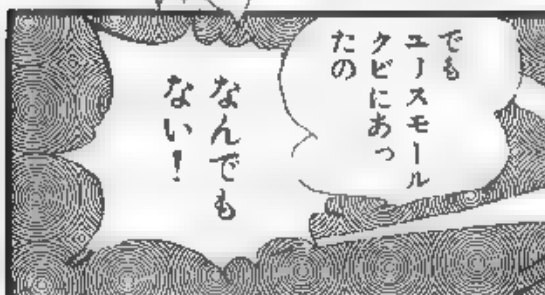 でも
ユースモール
クビにあっ
たの
なんでも
ない!